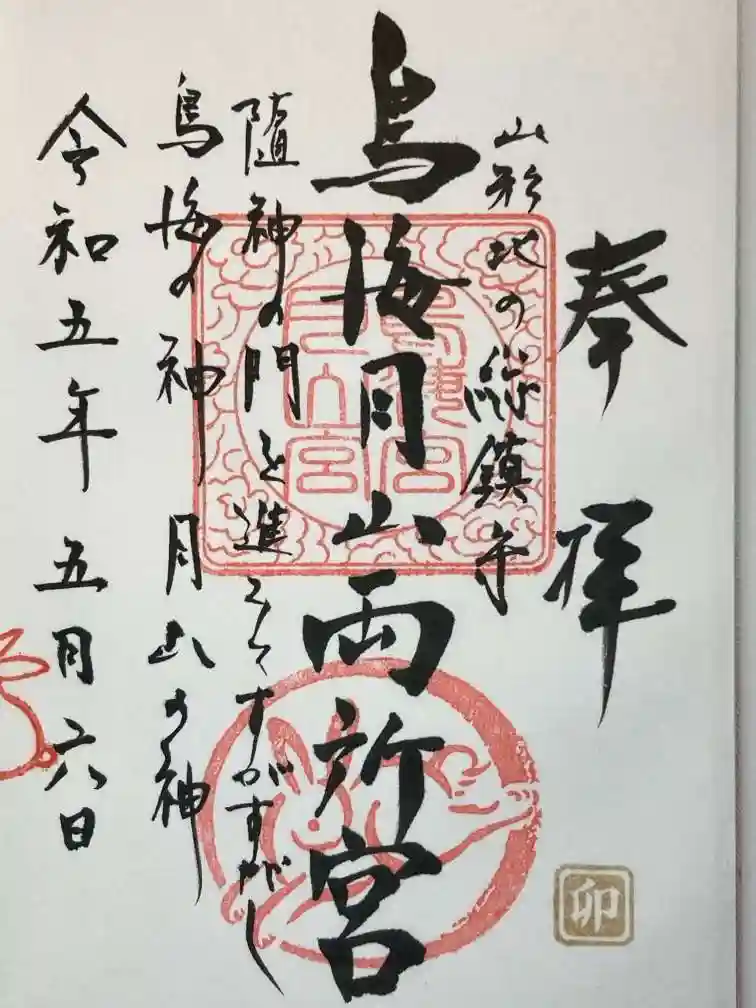 奉拝
山形北の総鎮守
鳥海月山両所宮
随神の門を進みてすがすがし
鳥海の神 月山の神
令和五年 五月六日
卯